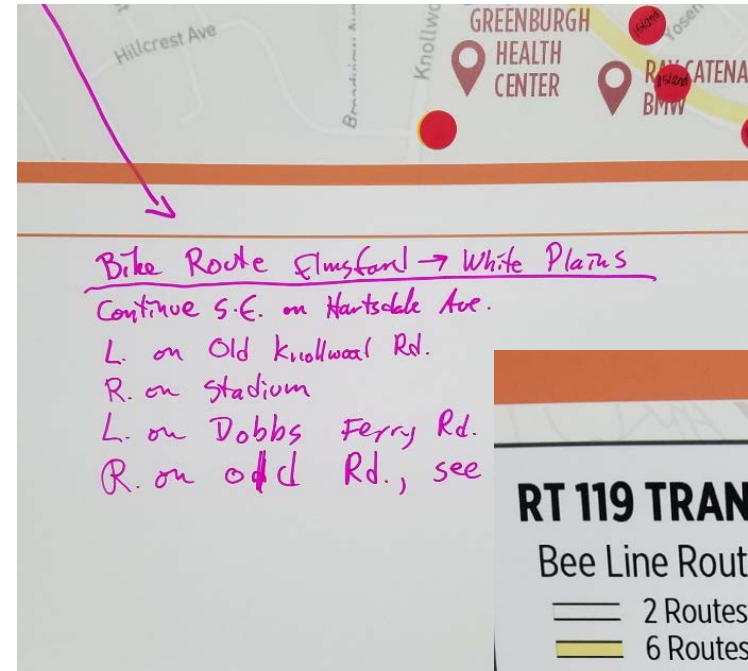 Hillcrest Ave
Knollwo
GREENBURGH
HEALTH
CENTER
Island
Yosem
RAY CATENA
BMW
Island
Bike Route Elmsford → White Plains
Continue S.E. on Hartsdale Ave.
L. on Old Knollwood Rd.
R. on Stadium
L. on Dobbs Ferry Rd.
R. on odd Rd., see
RT 119 TRAN
Bee Line Rout
2 Routes
6 Routes